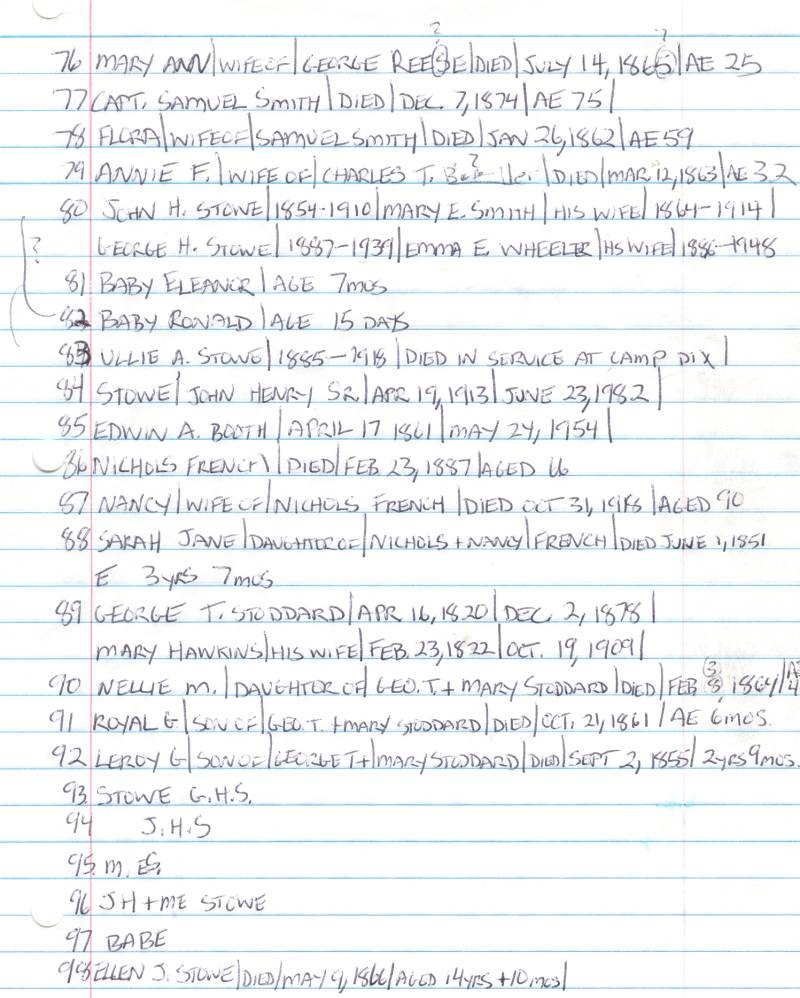 ? ?
76 MARY ANN|WIFE OF|GEORGE REESE|DIED|JULY 14, 1865|AE 25
77 CAPT. SAMUEL SMITH|DIED|DEC. 7, 1874|AE 75|
78 FLORA|WIFE OF|SAMUEL SMITH|DIED|JAN 26, 1862|AE 59
79 ANNIE F.|WIFE OF|CHARLES T. ?|DIED|MAR. 12, 1863|AE 32
80 JOHN H. STOWE|1854-1910|MARY E. SMITH|HIS WIFE|1864-1914|
? GEORGE H. STOWE|1887-1939|EMMA E. WHEELER|HS WIFE|1886-1948
81 BABY ELEANOR|AGE 7MOS
82 BABY RONALD|AGE 15 DAYS
83 ULLIE A. STOWE|1885-1918|DIED IN SERVICE AT CAMP DIX|
84 STOWE|JOHN HENRY SR.|APR 19, 1913|JUNE 23, 1982|
85 EDWIN A. BOOTH|APRIL 17 1861|MAY 24, 1954|
86 NICHOLS FRENCH|DIED|FEB. 23, 1887|AGED
87 NANCY|WIFE OF|NICHOLS FRENCH|DIED OCT 31, |AGED 90
88 SARAH JANE|DAUGHTER OF|NICHOLS + NANCY|FRENCH|DIED JUNE 1, 1851
E 3YRS 7MOS
89 GEORGE T. STODDARD|APR 16, 1820|DEC 2, 1878|
MARY HAWKINS|HIS WIFE|FEB. 23, 1822|OCT. 19, 1909|
90 NELLIE M.|DAUGHTER OF|GEO. T. + MARY STODDARD|DIED|FEB 8 (3), 1864|AE 4
91 ROYAL G|SON OF|GEO. T. + MARY STODDARD|DIED|OCT. 21, 1861|AE 6MOS.
92 LEROY G|SON OF|GEORGE T +|MARY STODDARD|DIED|SEPT 2, 1855|2YRS 9MOS.
93 STOWE G.H.S.
94 J.H.S
95. M.E.S.
96 JH + ME STOWE
97 BABE
98 ELLEN J. STOWE|DIED|MAY 9, 1866|AGED 14YRS + 10MOS|